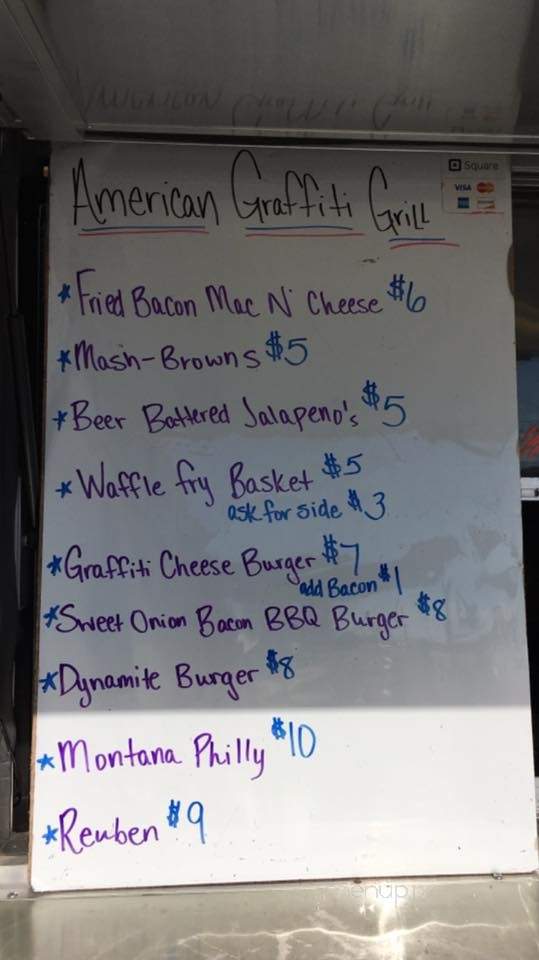 American Graffiti Grill
Square
VISA
*Fried Bacon Mac N' Cheese $6
*Mash-Browns $5
*Beer Battered Jalapeno's $5
*Waffle fry Basket $5
ask for side $3
*Graffiti Cheese Burger $7
add Bacon $1
*Sweet Onion Bacon BBQ Burger $8
*Dynamite Burger $8
*Montana Philly $10
*Reuben $9